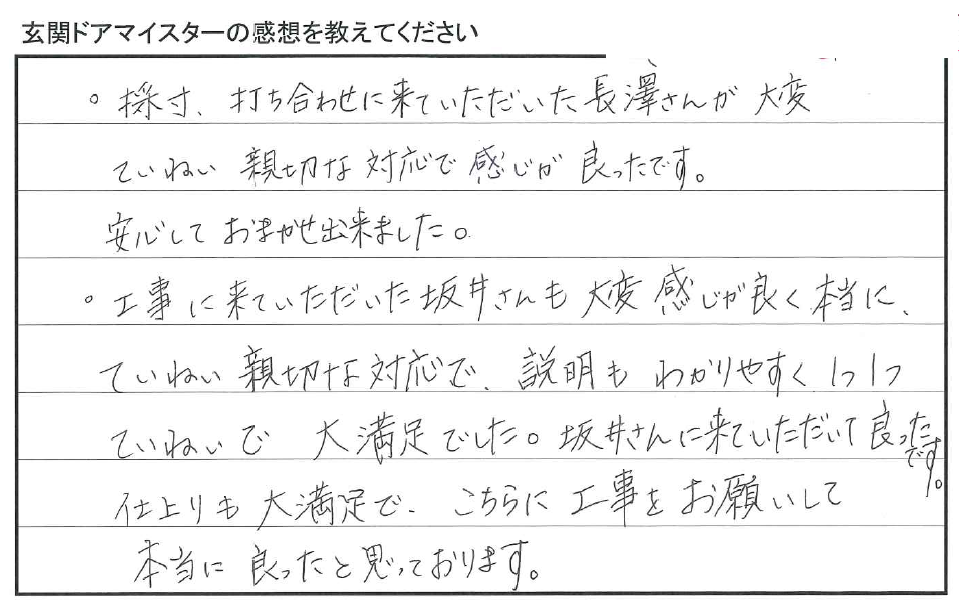 玄関ドアマイスターの感想を教えてください
。採寸、打ち合わせに来ていただいた長澤さんが大変
ていねい親切な対応で感じが良ったです。
安心しておまかせ出来ました。
。工事に来ていただいた坂井さんも大変感じが良く本当に、
ていねい親切な対応で、説明もわかりやすく1つ1つ
ていねいで大満足でした。坂井さんに来ていただいて良ったです。
仕上りも大満足で、こちらに工事をお願いして
本当に良ったと思っております。